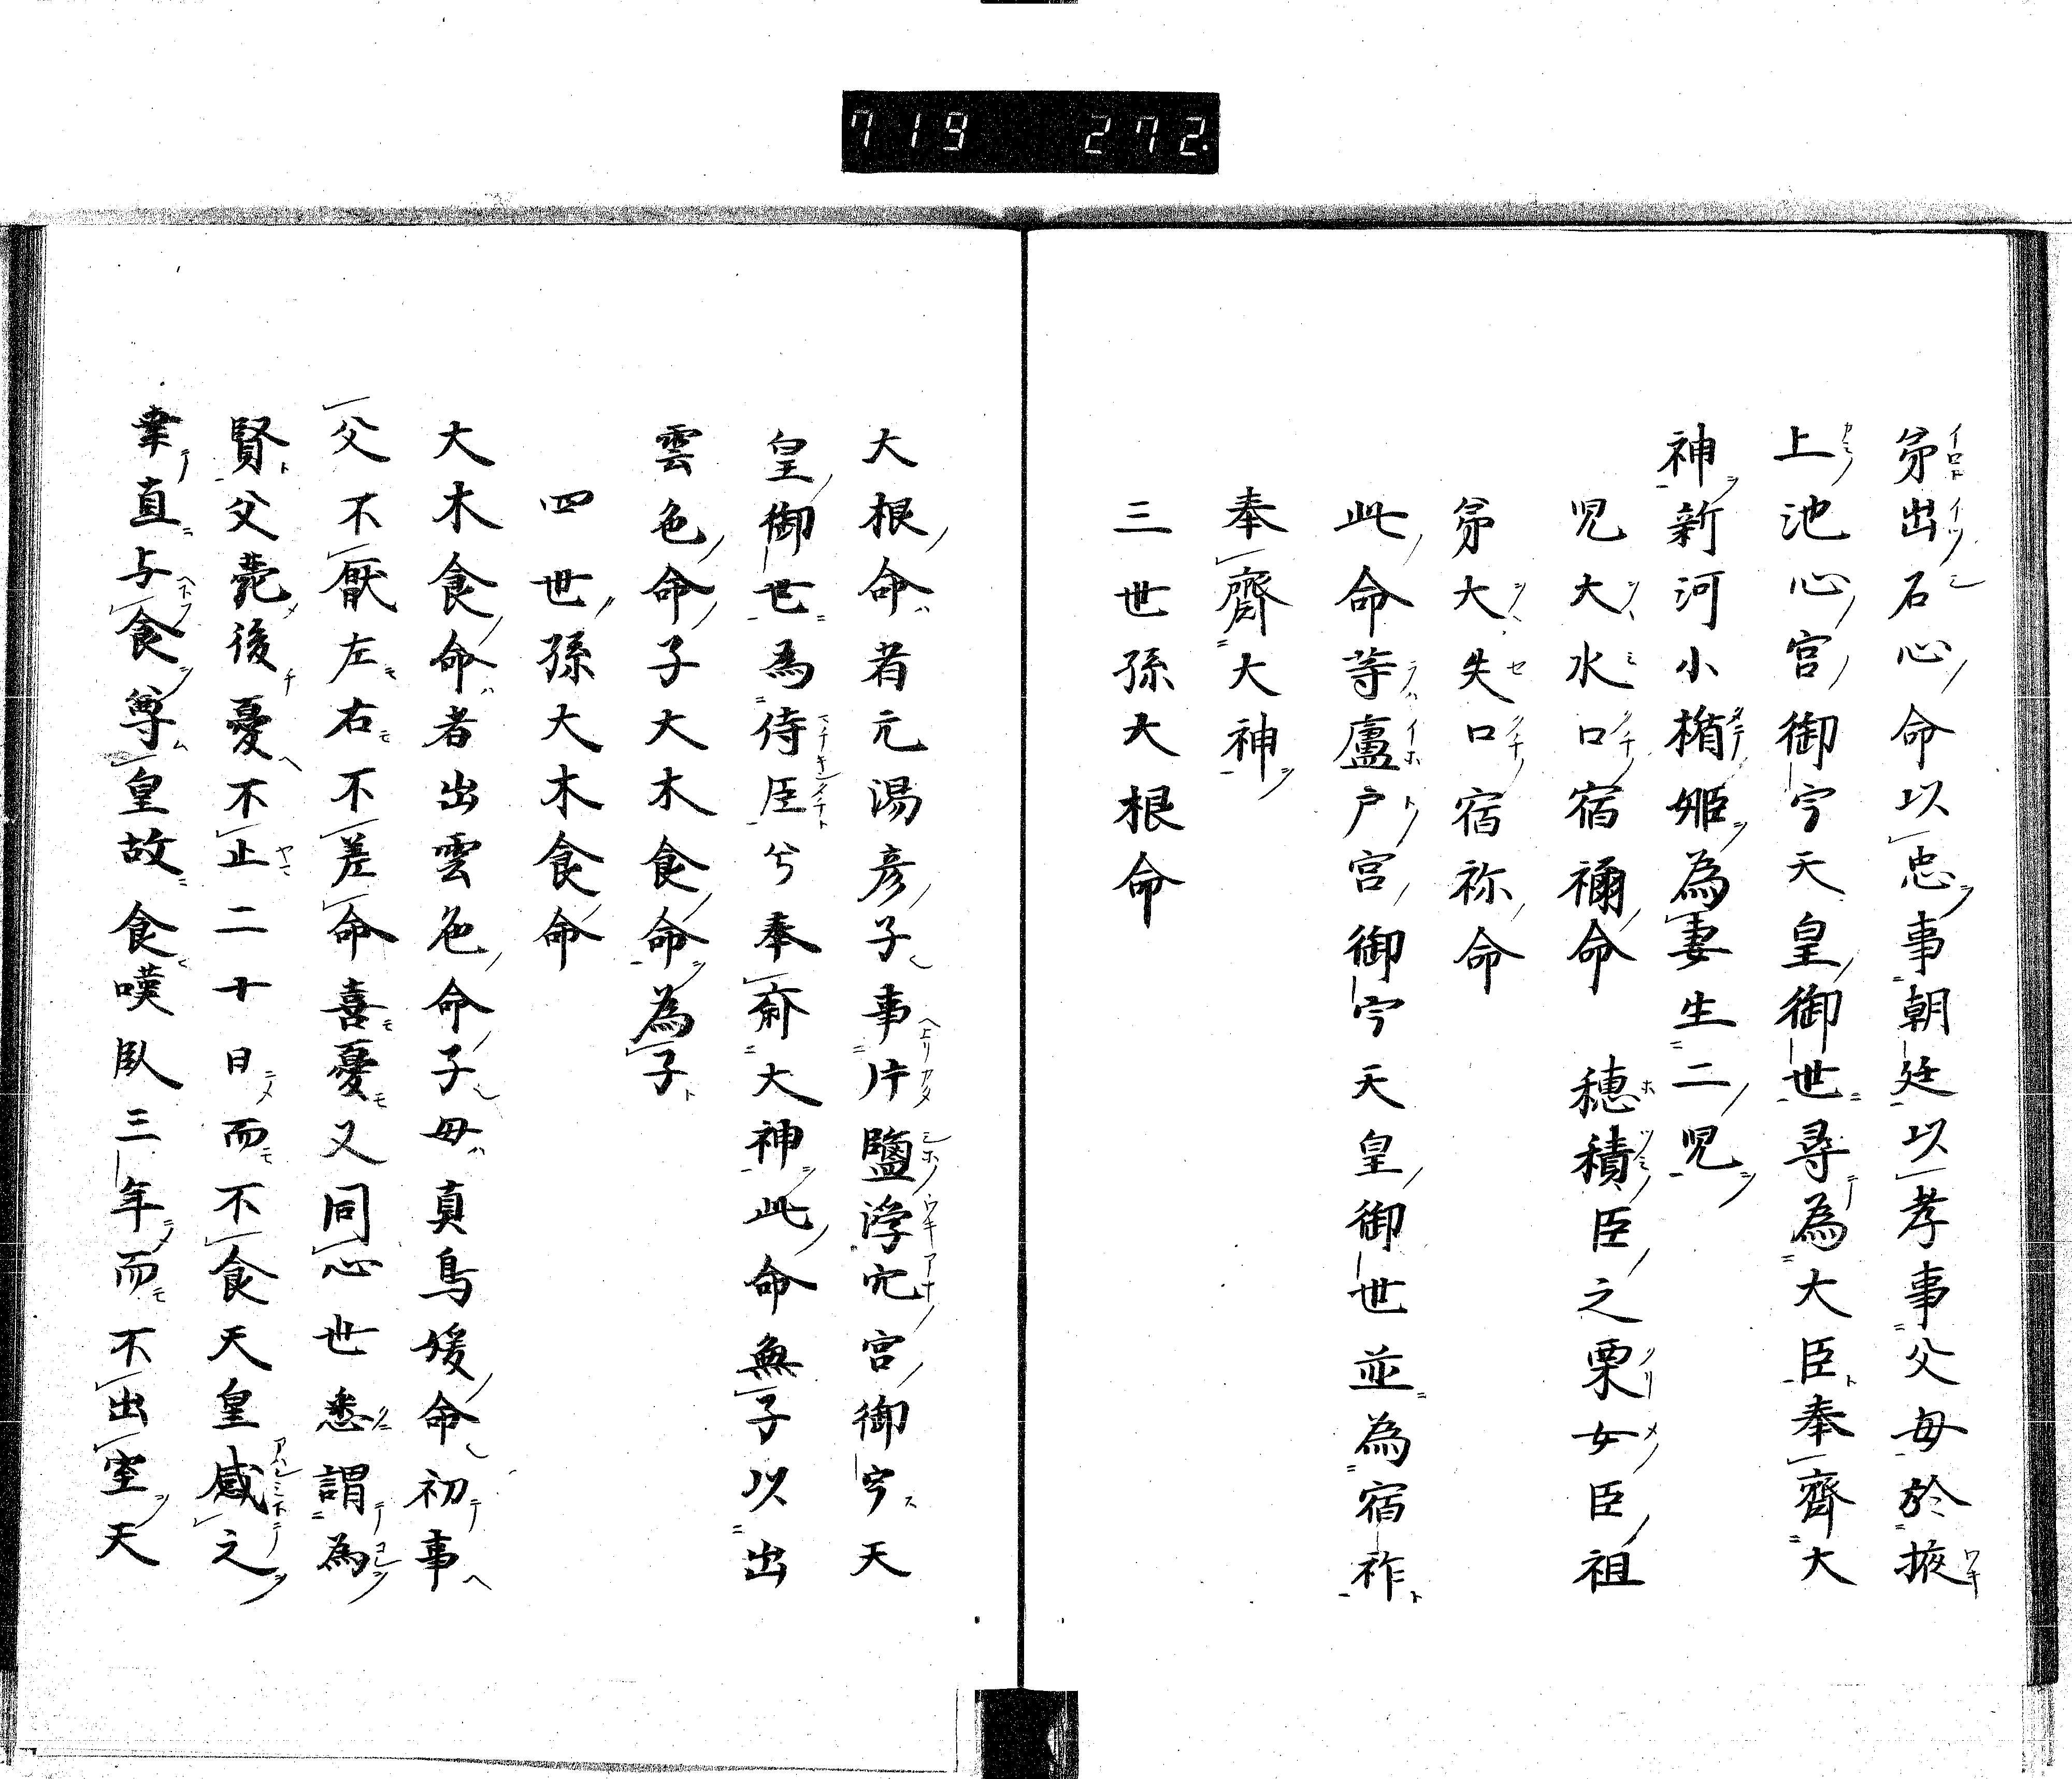 719 272.
弟出石心命以忠事朝廷以孝事父母於掖
上池心宮御宁天皇御世尋為大臣奉齊大
神新河小楯姬為妻生二児
児大水口宿禰命 穂積臣之栗女臣祖
弟大失口宿祢命
此命等廬戸宮御宁天皇御世並為宿祚
奉齊大神
三世孫大根命
大根命者元湯彦子事片鹽浮穴宮御宁天
皇御世為侍臣兮奉斎大神此命無子以出
雲色命子大木食命為子
四世孫大木食命
大木食命者出雲色命子母真鳥媛命初事
父不厭左右不差命喜憂又同心世悉謂為
賢父薨後憂不止二十日而不食天皇感之
幸直与食尊皇故食嘆臥三年而不出室天